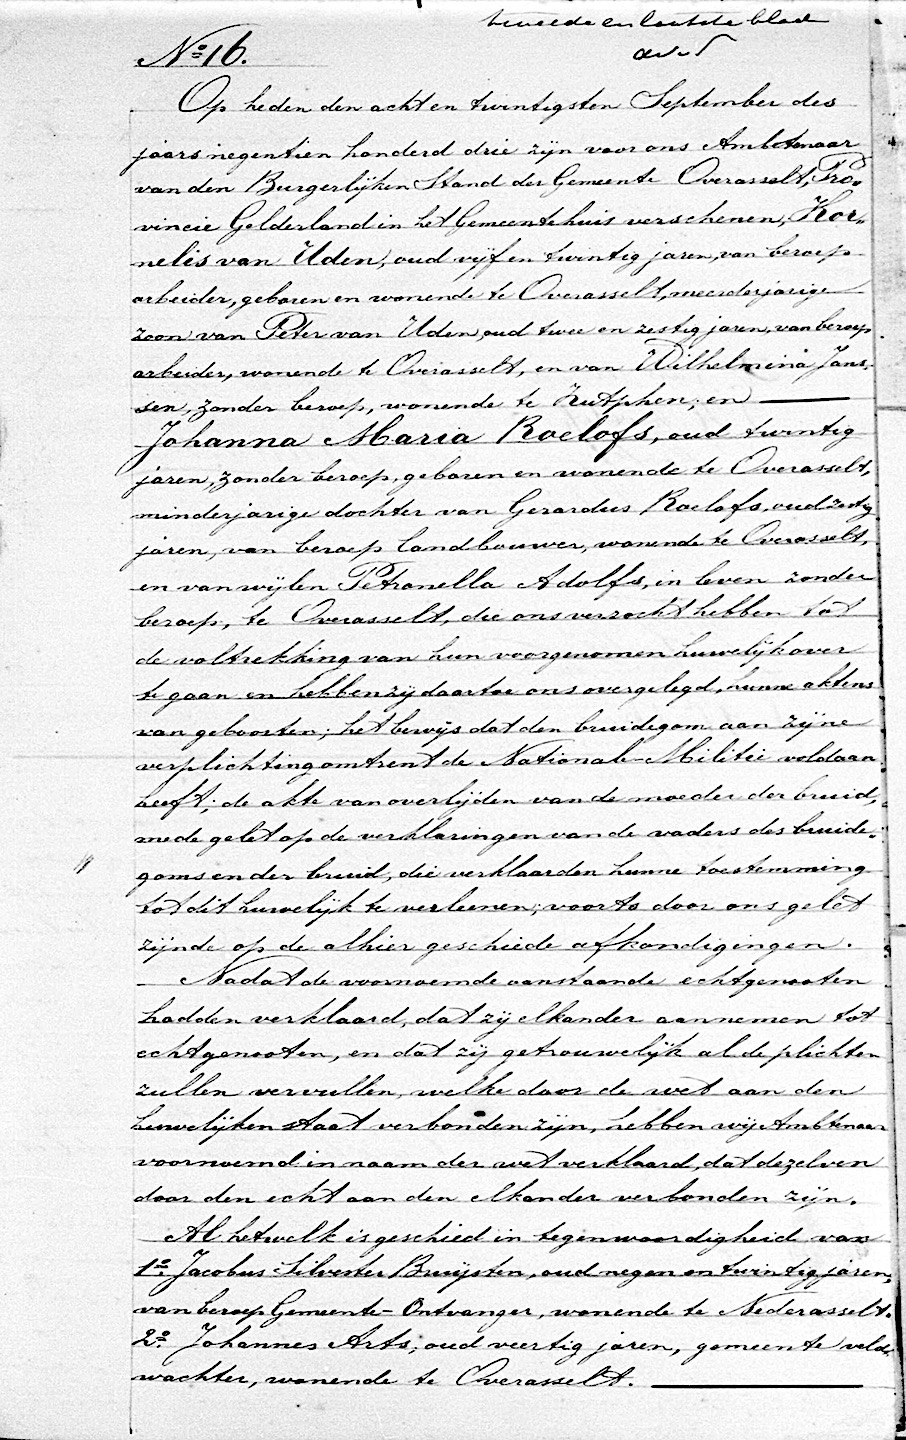 tweede en laatste blad
No 16.
Op heden den acht en twintigsten September des
jaars negentien honderd drie zijn voor ons Ambtenaar
van den Burgerlijken Stand der Gemeente Overasselt, Pro-
vincie Gelderland in het Gemeentehuis verschenen, Kor-
nelis van Uden, oud vijf en twintig jaren, van beroep
arbeider, geboren en wonende te Overasselt, meerderjarige
zoon van Peter van Uden, oud twee en zestig jaren, van beroep
arbeider, wonende te Overasselt, en van Wilhelmina Jans-
sen, zonder beroep, wonende te Zutphen; en
Johanna Maria Roelofs, oud twintig
jaren, zonder beroep, geboren en wonende te Overasselt,
minderjarige dochter van Gerardus Roelofs, oud zestig
jaren, van beroep landbouwer, wonende te Overasselt,
en van wijlen Petronella Adolfs, in leven zonder
beroep, te Overasselt, die ons verzocht hebben tot
de voltrekking van hun voorgenomen huwelijk over
te gaan en hebben zij daartoe ons overgelegd, hunne aktens
van geboorten; het bewijs dat den bruidegom aan zijne
verplichting omtrent de Nationale Militie voldaan
heeft; de akte van overlijden van de moeder der bruid,
mede gelet op de verklaringen van de vaders des bruide-
goms en der bruid, die verklaarden hunne toestemming
tot dit huwelijk te verleenen; voorts door ons gelet
zijnde op de alhier geschiede afkondigingen.
Nadat de voornoemde aanstaande echtgenooten
hadden verklaard, dat zij elkander aannemen tot
echtgenooten, en dat zij getrouwelijk al de plichten
zullen vervullen, welke door de wet aan den
huwelijken staat verbonden zijn, hebben wij Ambtenaar
voornoemd in naam der wet verklaard, dat dezelven
door den echt aan den elkander verbonden zijn.
Al hetwelk is geschied in tegenwoordigheid van
1o. Jacobus Silvester Bruijsten, oud negen en twintig jaren,
van beroep Gemeente-Ontvanger, wonende te Nederasselt.
2o. Johannes Arts, oud veertig jaren, gemeente veld-
wachter, wonende te Overasselt.